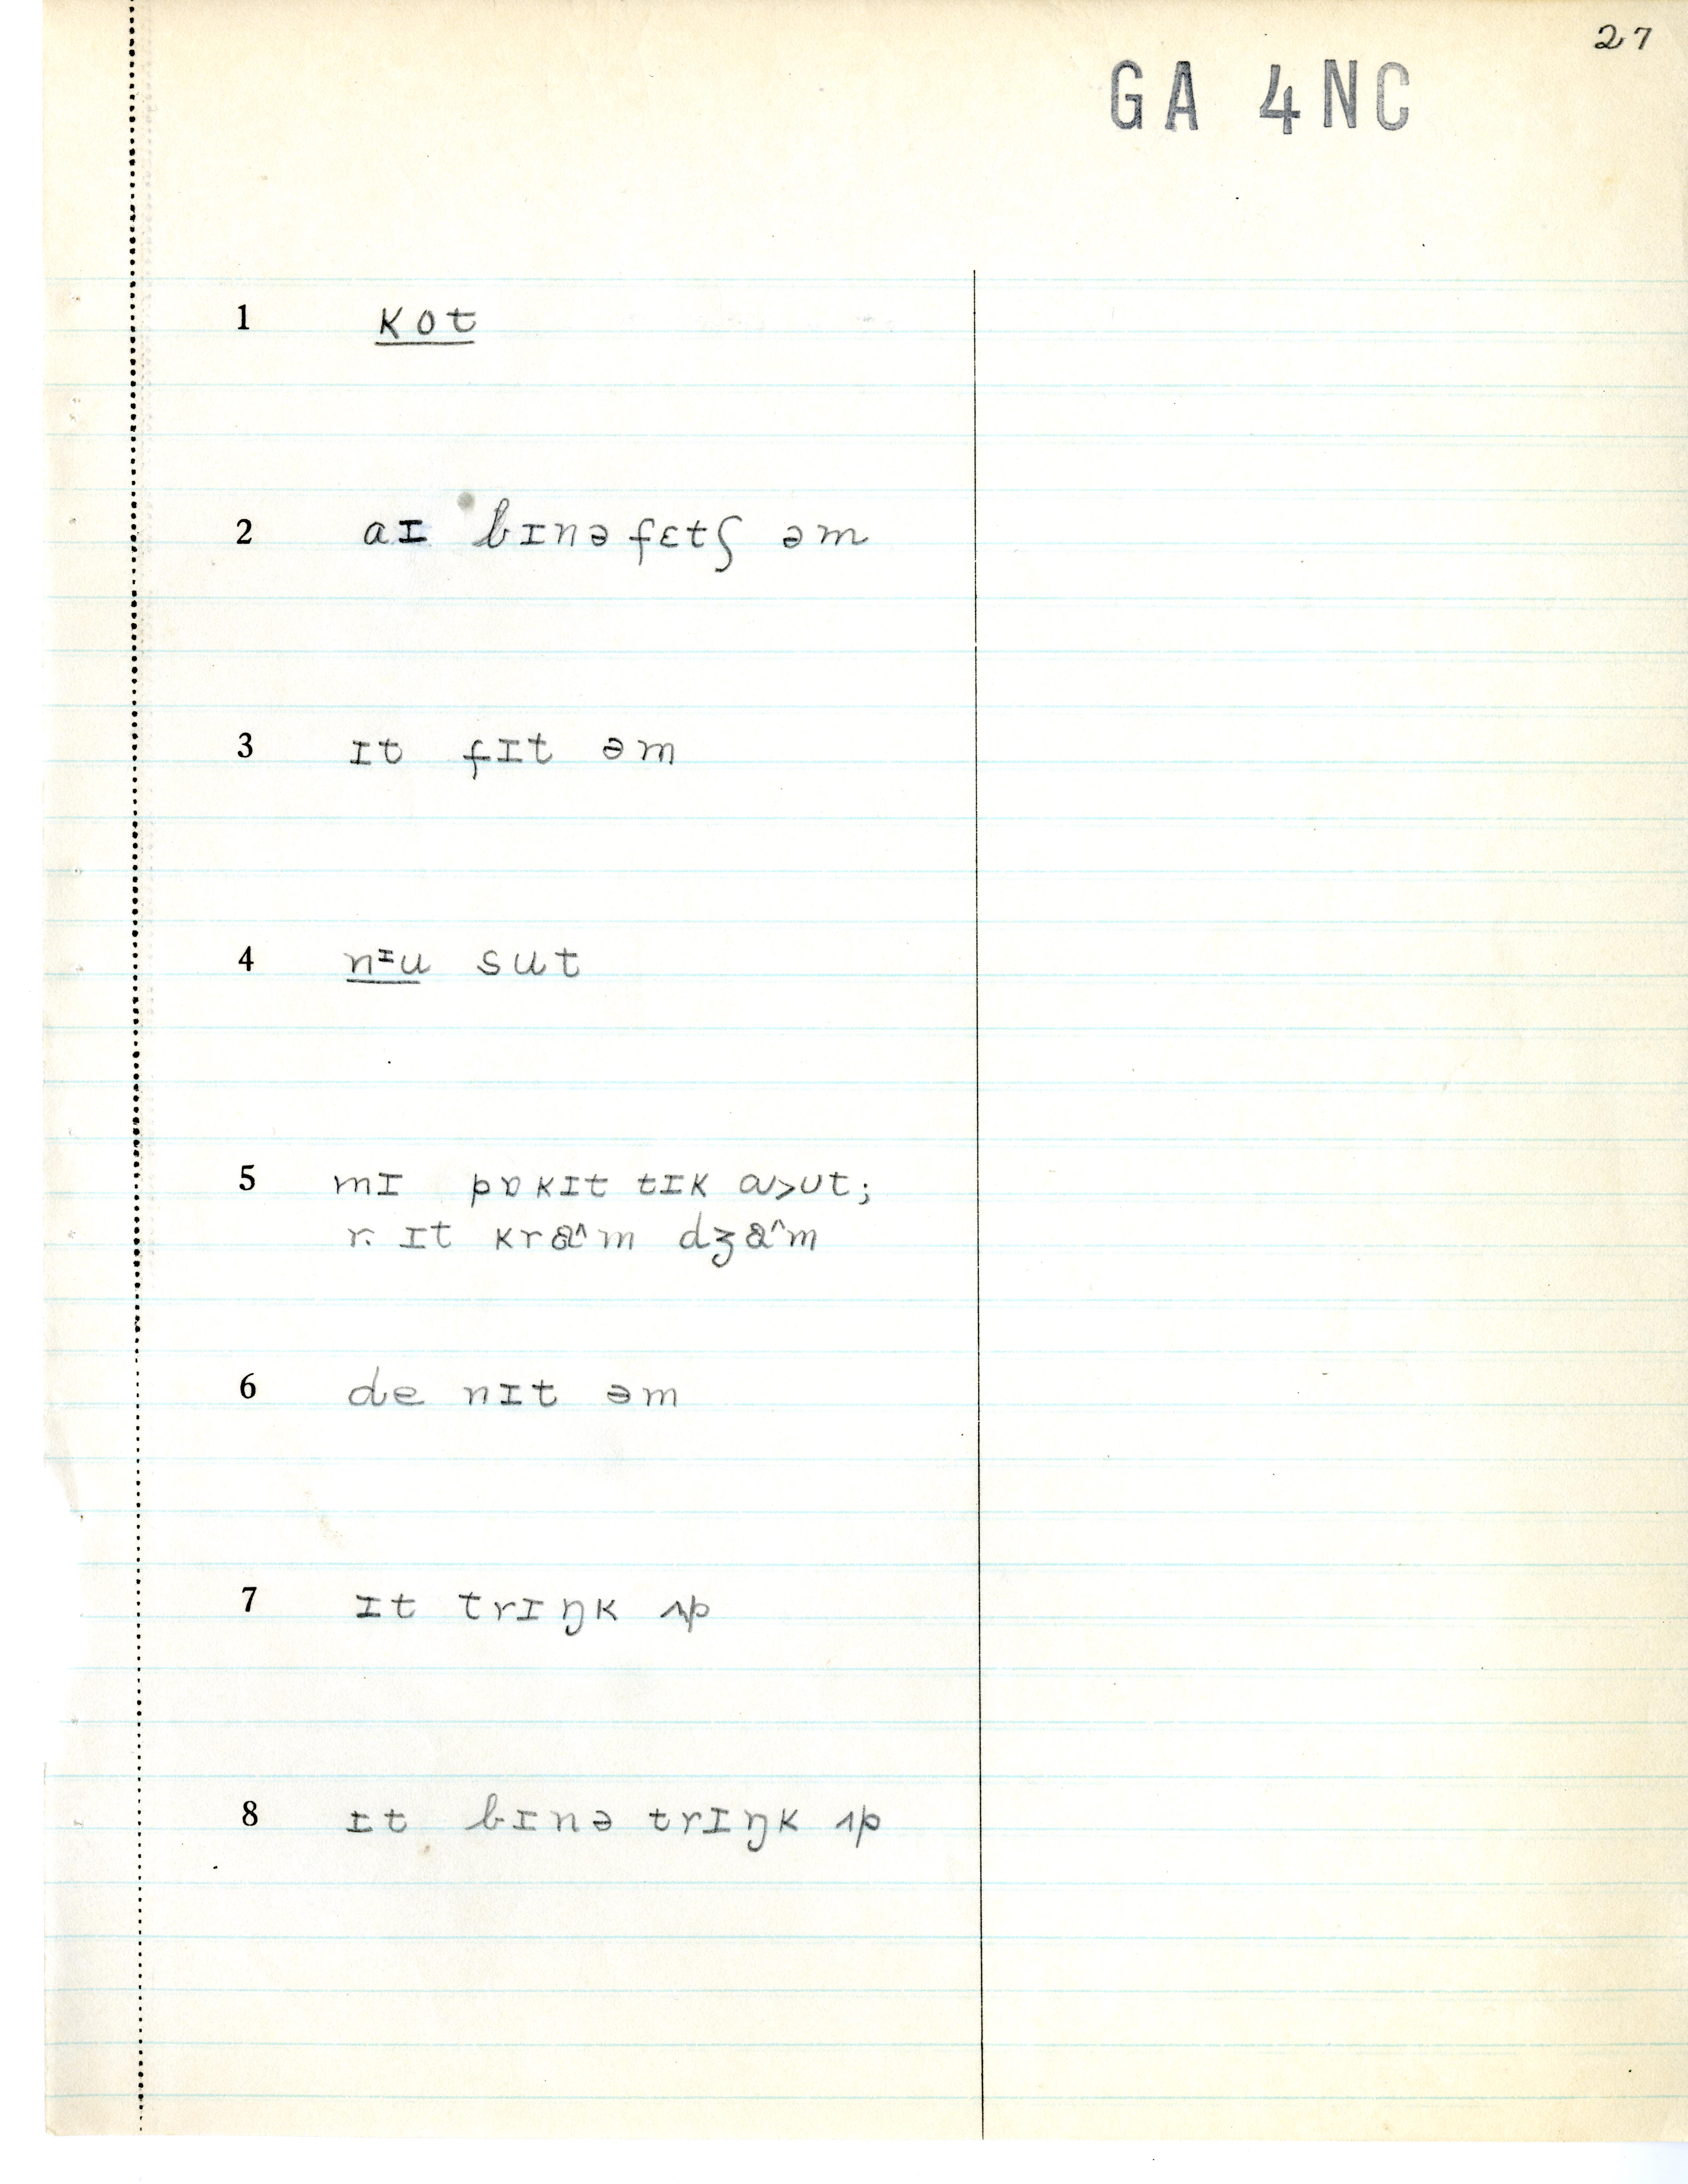 27
GA 4NC
1 kot
2 aɪ bɪnə fɛtʃ əm
3 ɪt fɪt əm
4 nᶦu sut
5 mɪ pɒkɪt tɪk ɑ>ʊt;
r. ɪt krɑ^m dʒɑ^m
6 de nɪt əm
7 ɪt trɪŋk ʌp
8 ɪt bɪnə trɪŋk ʌp